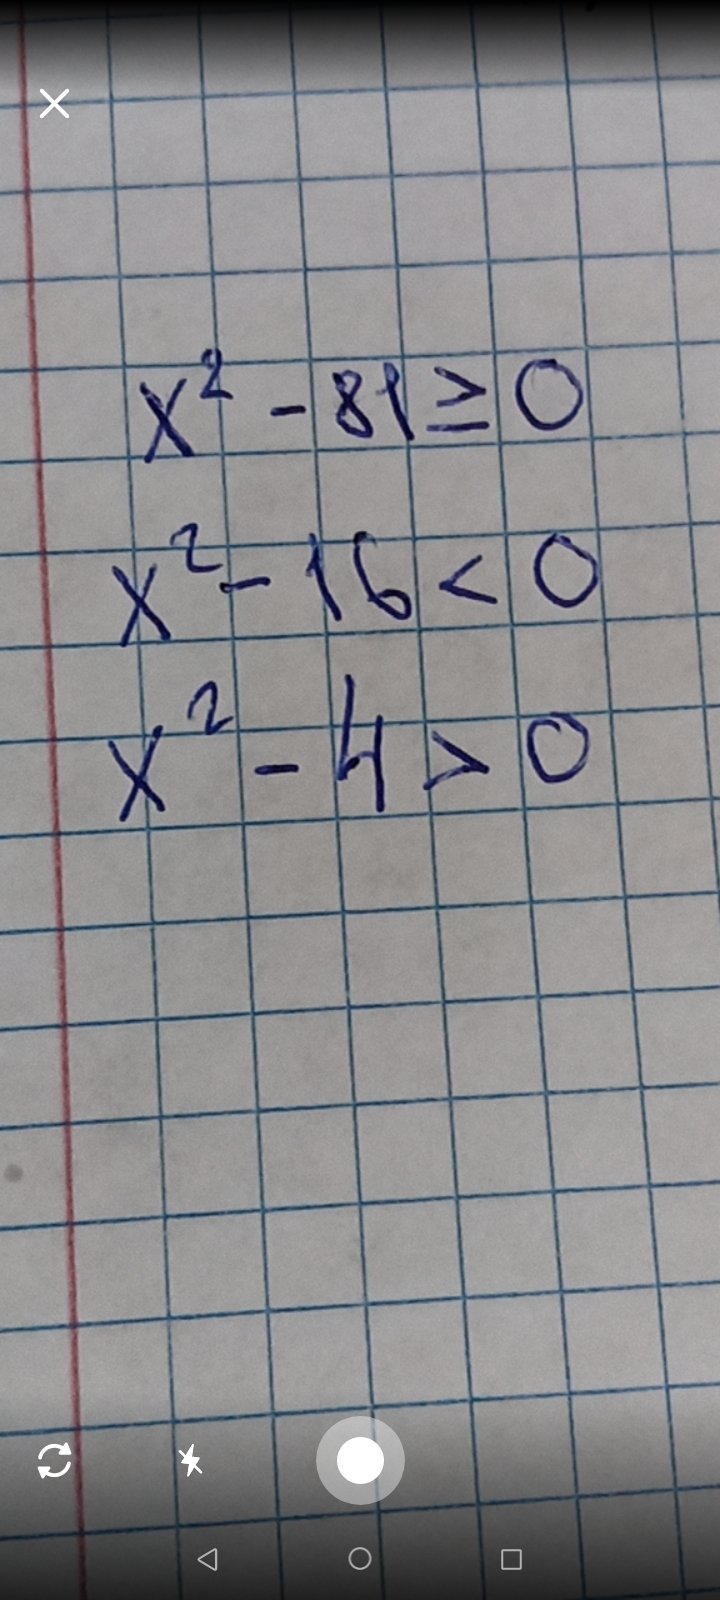 x² - 81 ≥ 0
x² - 16 < 0
x² - 4 > 0